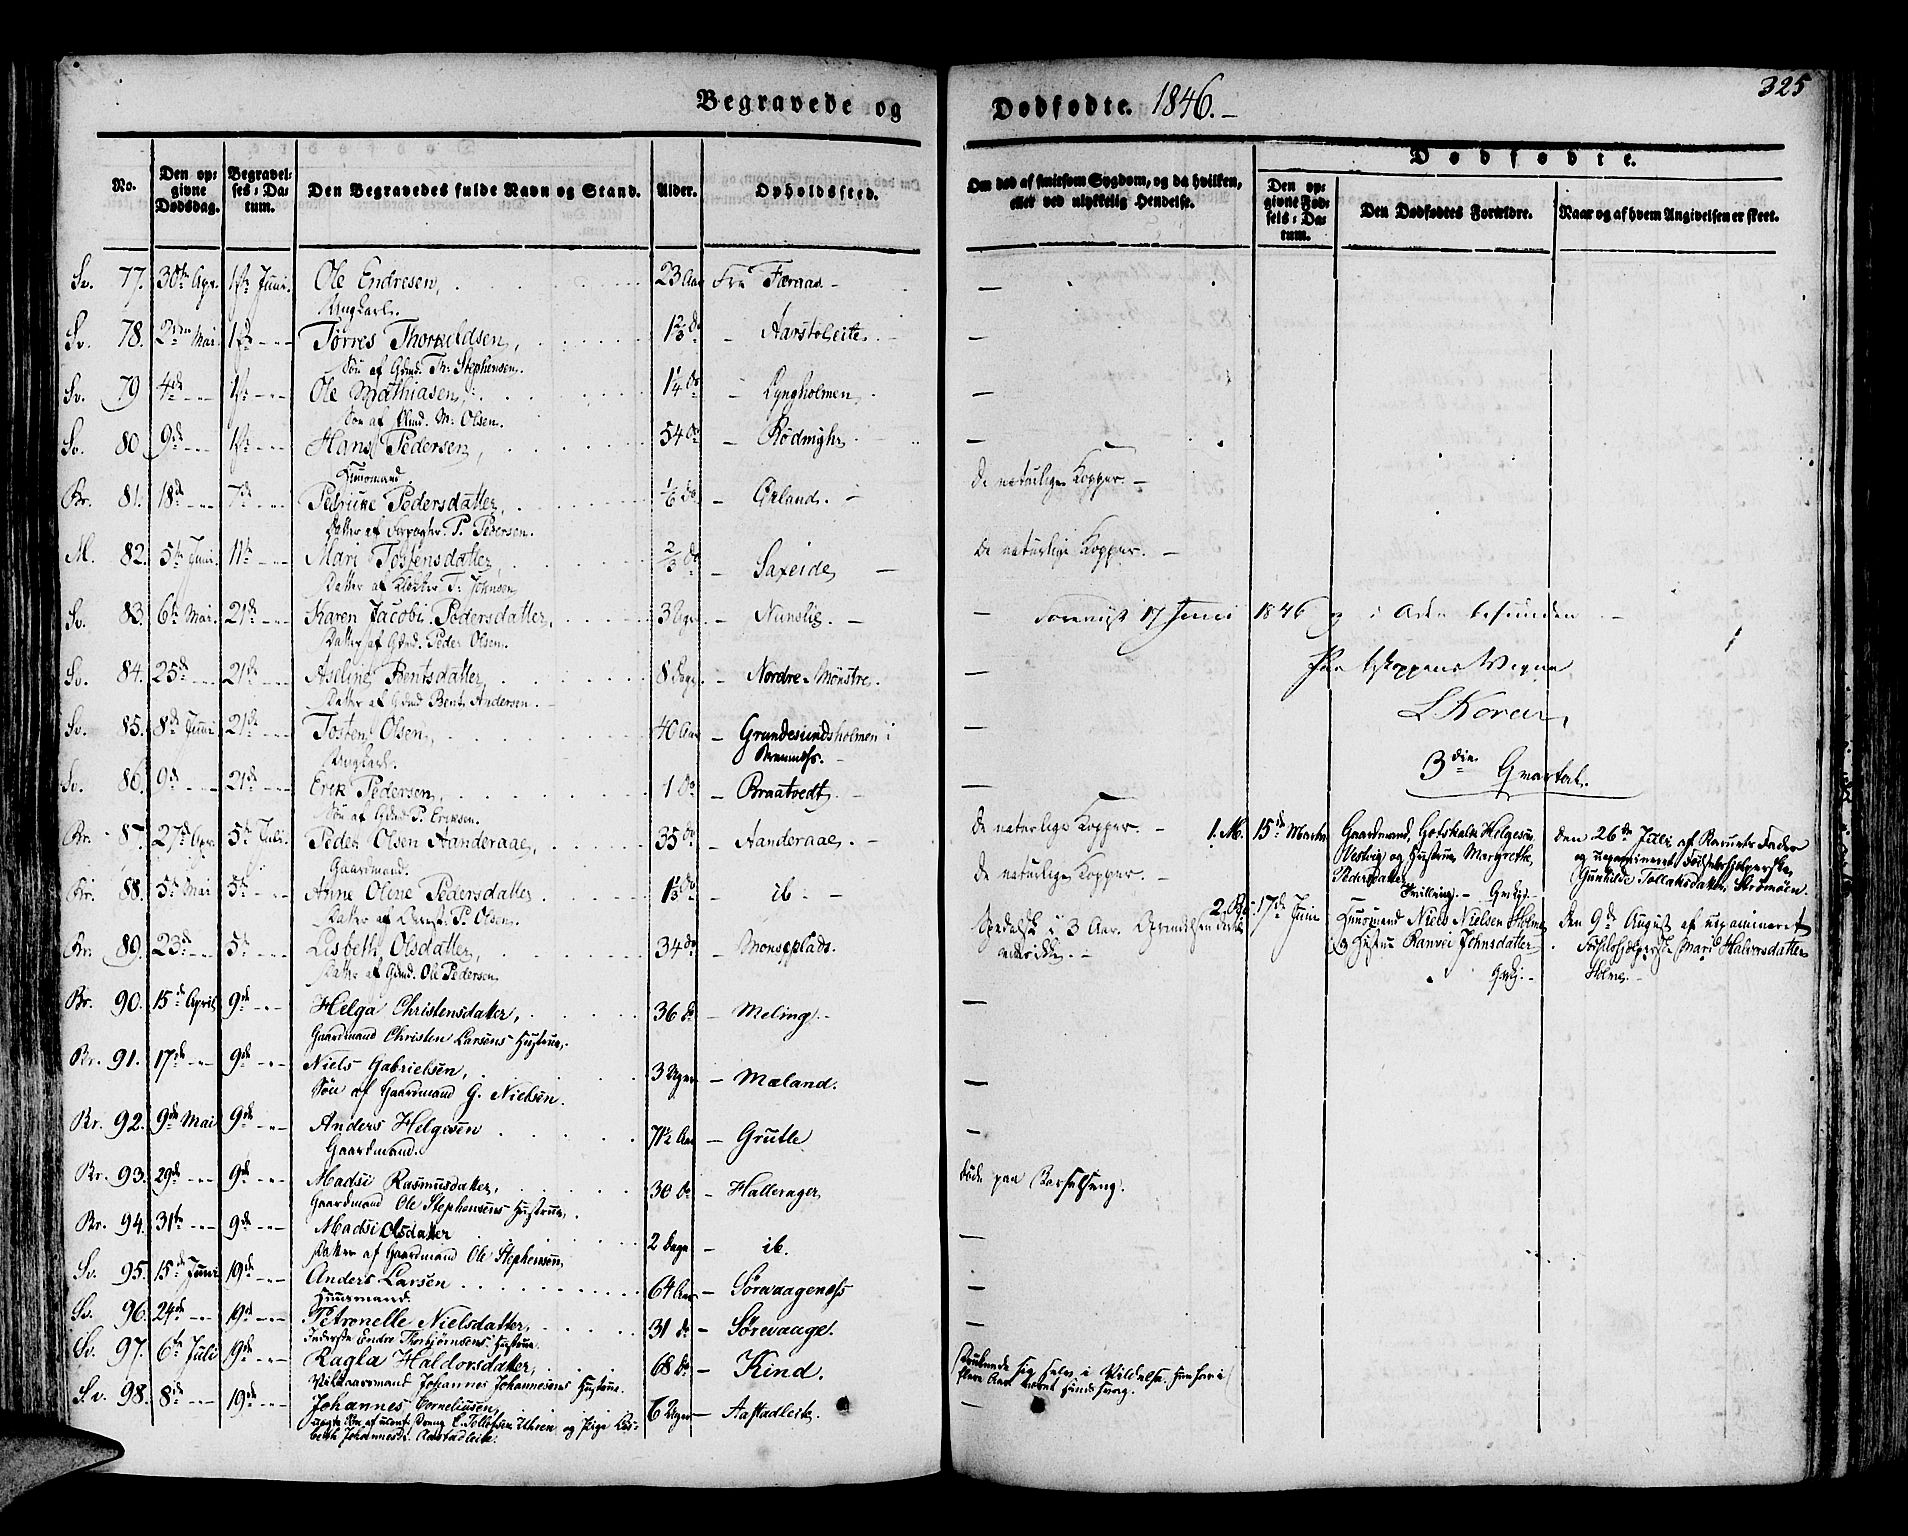 Begravede og Dødfødte. 1846.-
325
No.
Den opgivne Dødsdag.
Begravelses-Datum.
Den Begravedes fulde Navn og Stand.
Alder.
Opholdssted.
Om død af smitsom Sygdom, og da hvilken, eller ved ulykkelig Hendelse.
Dødfødte.
Den opgivne Fødsels-Datum.
Den Dødfødtes Forældre.
Naar og af hvem Angivelsen er skeet.
Sv. 77. 30te Apr. 1ste Juni. Ole Endresen, 23 Aar Fra Færaas -
Ungkarl.
Sv. 78. 2den Mai 1ste Tørres Thorkildsen, 1 2/3 do - Aarstoleite.
Søn af Gdmd. Th. Stephensen.
Sv. 79 4de 1ste Ole Mathiasen, 1 1/4 do - Lyngholmen.
Søn af M. Olsen.
Sv. 80. 9de 1ste Hans Pedersen, 54 do -
Huusmand.
Br. 81. 18de 7de Petrine Pedersdatter, 1/6 do - De naturlige Kopper. -
Datter af P. Pedersen.
M. 82. 5te Juni 11te Mari Tostensdatter, 2/3 do - Saxeide - De naturlige Kopper. -
Datter af T. Johnsen
Sv. 83. 6te Mai. 21de Karen Jacobi. Pedersdatter, 3 Uger. -
Datter af Gdmd. Peder Olsen.
17 Juni 1846 og i Orden befunden
Sv. 84. 25de 21de Aseline Bentsdatter, 8 Dage. - Nordre Mønstre.
Datter af Gdmd Bent Andersen.
Paa Biskoppens Vegne
L Koren,
Sv. 85. 8de Juni 21de Tosten Olsen, 46 Aar - Grundesundsholmen i
Ungkarl.
Sv. 86. 9de 21de Erik Pedersen, 1 do - Braatvedt.
Søn af Gdmd P. Eriksen.
3die Qvartal.
Br. 87. 27de Apr. 5te Juli. Peder Olsen Aanderaae, 35 do - Aanderaae. - De naturlige Kopper. -
Gaardmand.
1. M. 15de Marts Gaardmand, Gotskalk Helgesen
Vestvig og Hustrue Margrethe
Pedersdatter
Den 26de Juli af Barnets Fader
og uexamineret Fødselshjelperske
Gunhilde Tollaksdatter Strømøen.
Br. 88. 5te Mai 5te Anne Oline Pedersdatter, 1 1/3 do - ib. - De naturlige Kopper. -
Datter af P. Olsen.
2. Br. 17de Juni Huusmand Niels Nielsen Holme
og Hustrue Ranvei Johnsdatter
Den 9de August af uexamineret
Fødselshjelperske Mari Halvorsdatter
Holme. -
Br. 89. 23de 5te Lisbeth Olsdatter, 34 do - Monseplads. Spedalsk i 3 Aar.
Datter af Gdmd. Ole Pedersen.
Br. 90. 15de April 9de Helga Christensdatter, 36 do - Meling. -
Gaardmand Christen Larsens Hustrue,
Br. 91. 17de 9de Niels Gabrielsen, 3 Uger - Mæland.
Søn af Gaardmand G. Nielsen.
Br. 92. 9de Mai 9de Anders Helgesen 71½ Aar - Grutle
Gaardmand.
Br. 93. 29de 9de Madsi Rasmusdatter, 30 do - Hallerager døde paa Barselseng.
Gaardmand Ole Stephensens Hustrue,
Br. 94. 31te 9de Madsi Olsdatter 2 Dage - ib.
Datter af Gaardmand Ole Stephensen
Sv. 95. 15de Juni 19de Anders Larsen 64 Aar - Sørevaagenæss
Huusmand.
Sv. 96. 24de 19de Petronelle Nielsdatter, 31 do - Sørevaage.
Inderste Endre Thorbjørnsens Hustrue.
Sv. 97. 6te Juli 19de Ragla Haldorsdatter, 68 do - Kind. Druknede sig selv i Vildelse.
Vilkaarsmand Johannes Johannesens Hustrue. flere Aar været sindssvag.
Sv. 98. 8de 19de Johannes Corneliusen, 6 Uger - Aastadleite.
uægte Søn af C. Tollofsen Uhren og Pige Lisbeth
Johannesd. Aastadleite.